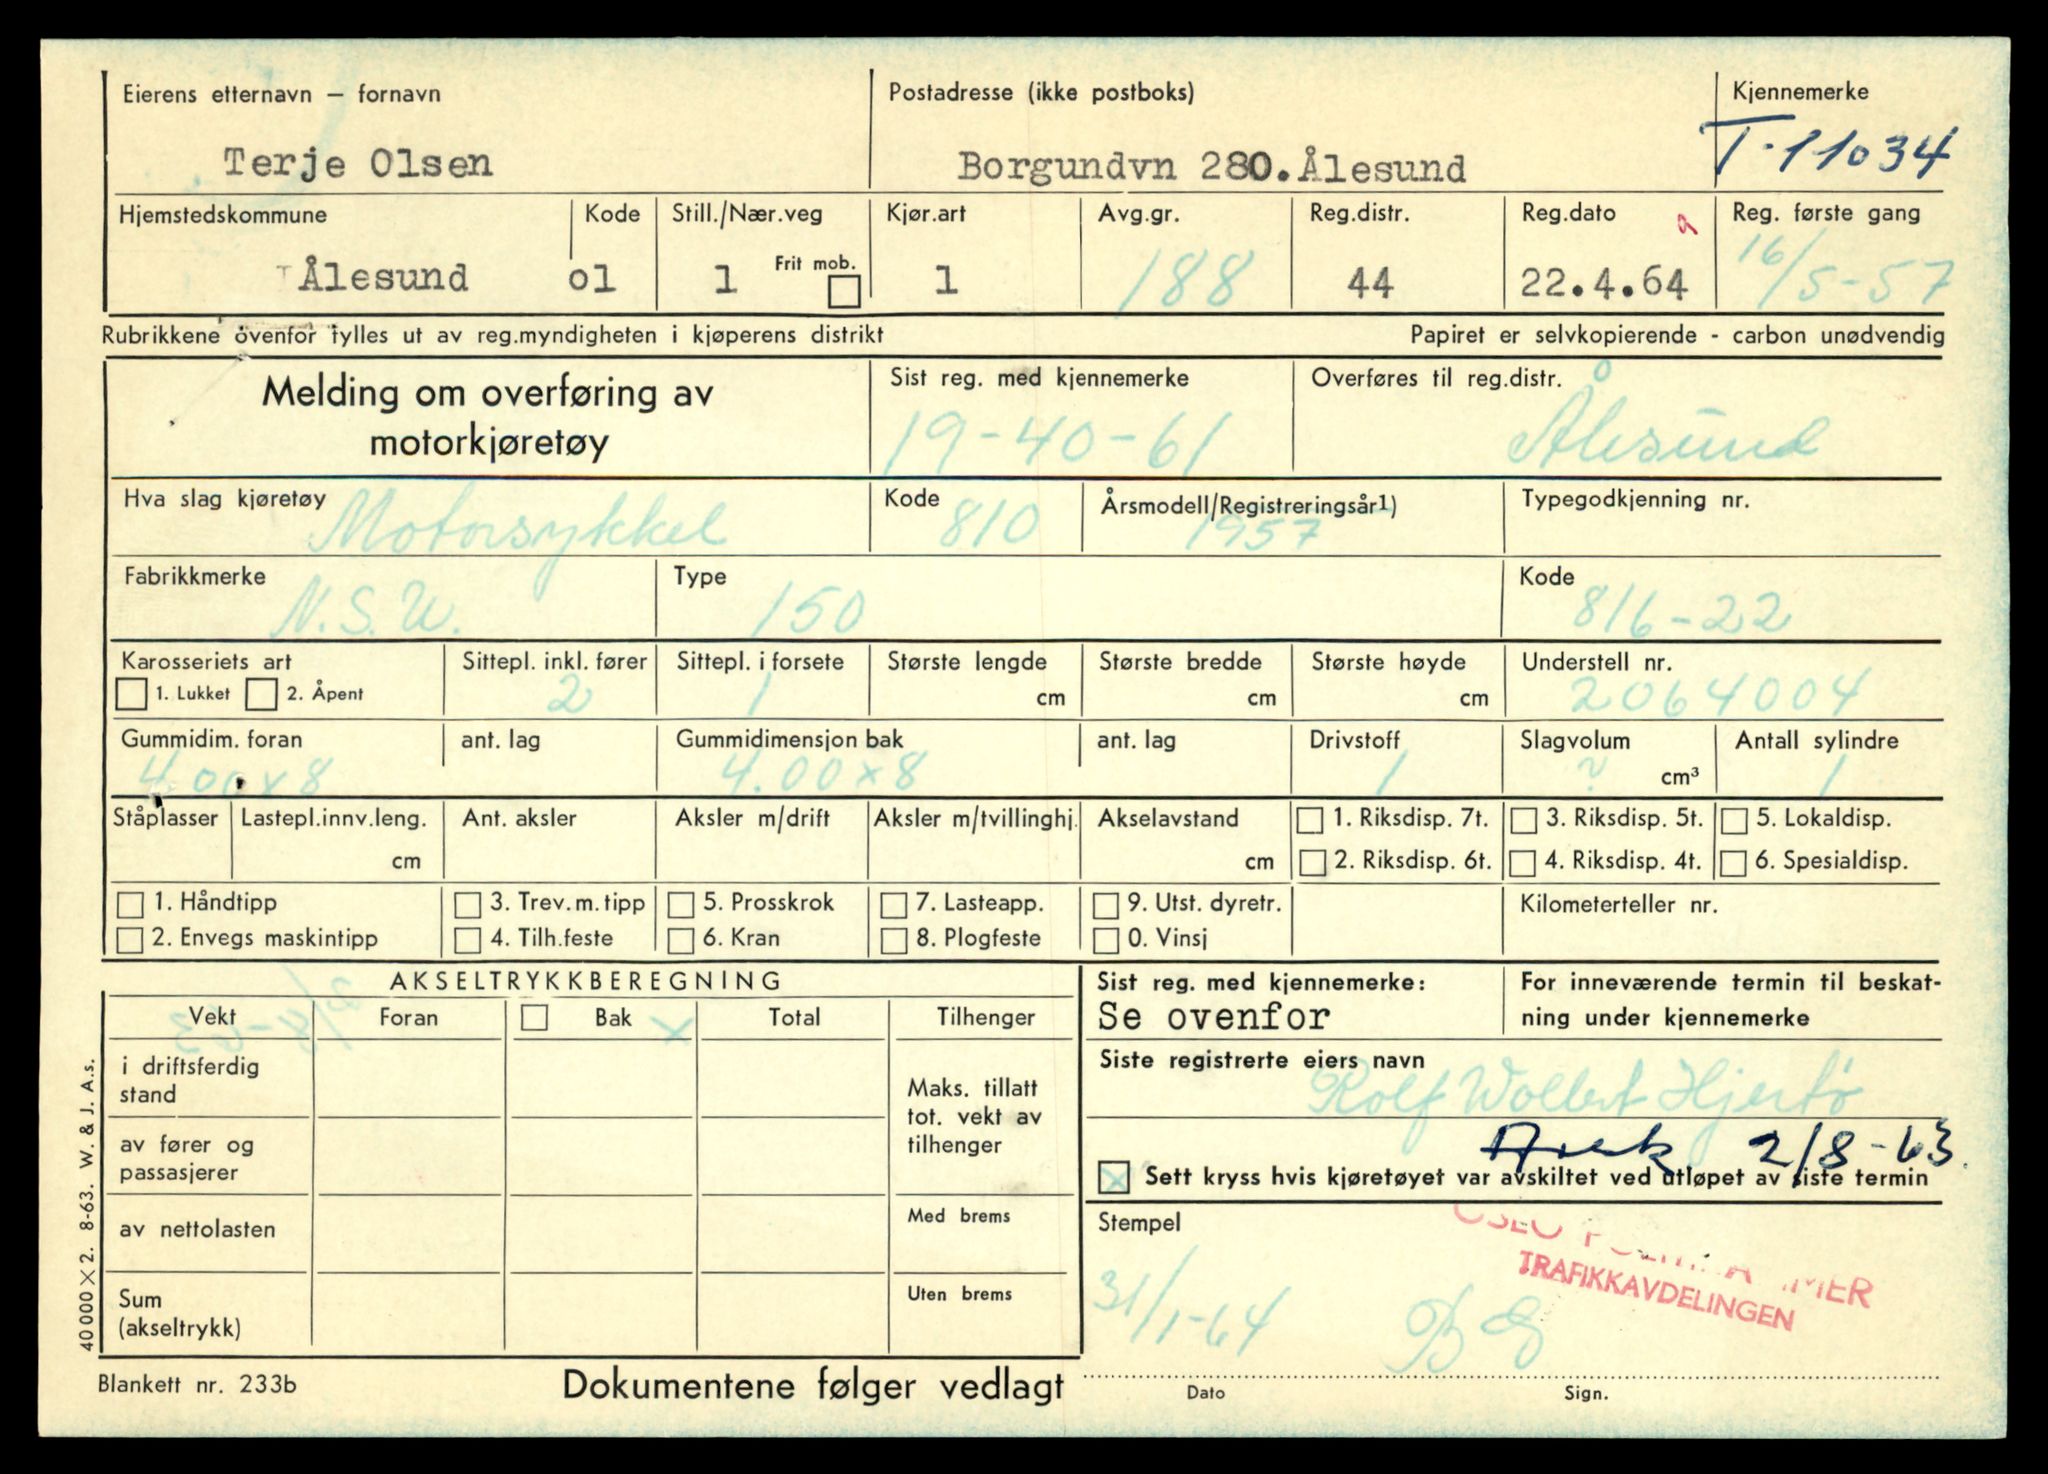 Eierens etternavn – fornavn Postadresse (ikke postboks) Kjennemerke
Terje Olsen Borgundvn 280. Ålesund T-11034
Hjemstedskommune Kode Still./Nær.veg Kjør.art Avg.gr. Reg.distr. Reg.dato 9 Reg. første gang
Ålesund 01 1 Frit mob. 1 188 44 22.4.64 16/5-57
Rubrikkene ovenfor fylles ut av reg.myndigheten i kjøperens distrikt Papiret er selvkopierende - carbon unødvendig
Melding om overføring av Sist reg. med kjennemerke Overføres til reg.distr.
motorkjøretøy 19-40-61 Ålesund
Hva slag kjøretøy Kode Årsmodell/Registreringsår1) Typegodkjenning nr.
Motorsykkel 810 1957
Fabrikkmerke Type Kode
N.S.U. 150 816-22
Karosseriets art Sittepl. inkl. fører Sittepl. i forsete Største lengde Største bredde Største høyde Understell nr.
1. Lukket 2. Åpent 2 1 cm cm cm 2064004
Gummidim. foran ant. lag Gummidimensjon bak ant. lag Drivstoff Slagvolum Antall sylindre
4.00x8 4.00x8 1 ? cm³ 1
Ståplasser Lastepl.innv.leng. Ant. aksler Aksler m/drift Aksler m/tvillinghj. Akselavstand 1. Riksdisp. 7t. 3. Riksdisp. 5t. 5. Lokaldisp.
cm cm 2. Riksdisp. 6t. 4. Riksdisp. 4t. 6. Spesialdisp.
1. Håndtipp 3. Trev.m.tipp 5. Prosskrok 7. Lasteapp. 9. Utst. dyretr. Kilometerteller nr.
2. Envegs maskintipp 4. Tilh.feste 6. Kran 8. Plogfeste 0. Vinsj
AKSELTRYKKBEREGNING Sist reg. med kjennemerke: For inneværende termin til beskat-
Vekt Foran Bak x Total Tilhenger Se ovenfor ning under kjennemerke
i driftsferdig stand Maks. tillatt tot. vekt av tilhenger Siste registrerte eiers navn
Rolf Wollert Hjertø
av fører og passasjerer 2/8-63.
x Sett kryss hvis kjøretøyet var avskiltet ved utløpet av siste termin
av nettolasten Med brems Stempel
OSLO POLITIKAMMER
TRAFIKKAVDELINGEN
Sum (akseltrykk) Uten brems 31/1-64
40 000 X 2. 8-63. W. & J. A.s.
Blankett nr. 233b Dokumentene følger vedlagt Dato Sign.